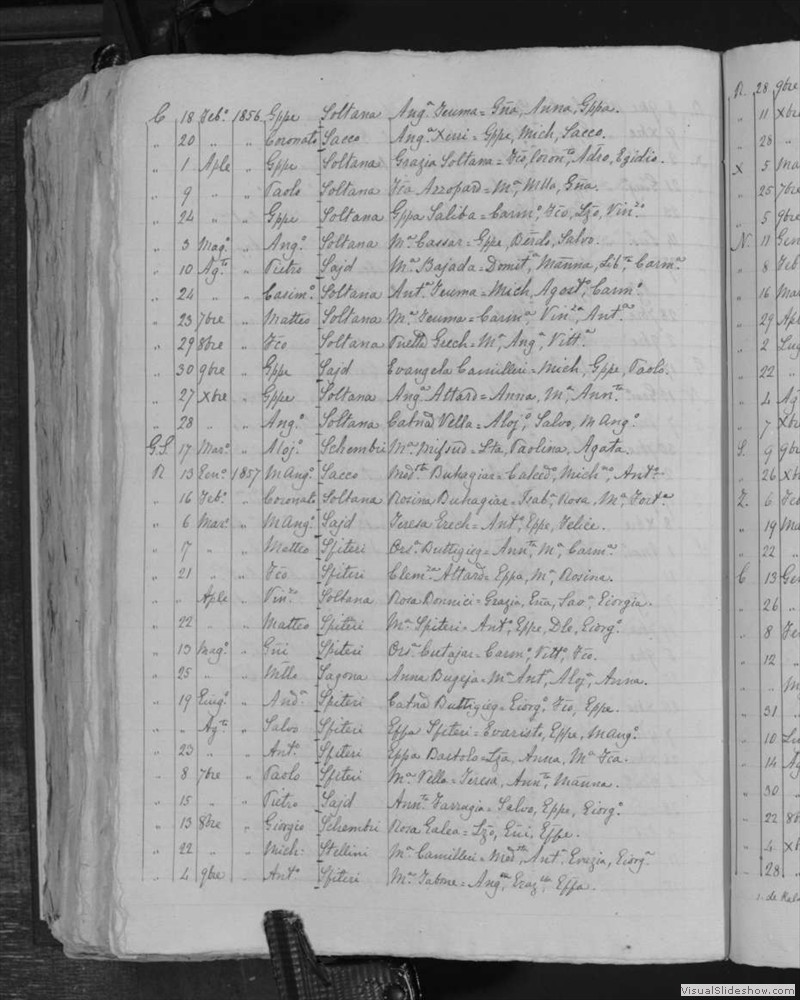 C 18 Feb.o 1856 Gppe Soltana Ang.a Teuma = Gña, Anna, Gppa.
„ 20 „ „ Coronato Sacco Ang.a Xiri = Gppe, Mich, Sacco.
„ 1 Aple „ Gppe Soltana Grazia Soltana = Fco, Coron.to, Adeo, Egidio.
„ 9 „ „ Paolo Soltana Fca Azzopard = M.a, Mllo, Gña.
„ 24 „ „ Gppe Soltana Gppa Saliba = Carm.o, Fco, Lzo, Vin.zo
„ 3 Mag.o „ Ang.o Soltana M.a Cassar = Gppe, Berdo, Salvo.
„ 10 Ag.to „ Pietro Sajd M.a Bajada = Domit.a, Manna, Lib.ta, Carm.a
„ 24 „ „ Casim.o Soltana Ant.a Teuma = Mich, Agost.o, Carm.o
„ 23 7bre „ Matteo Soltana M.a Teuma = Carm.a, Vin.za, Ant.a
„ 29 8bre „ Fco Soltana Grech = M.a, Ang.a, Vitt.a
„ 30 9bre „ Gppe Sajd Evangela Camilleri = Mich, Gppe, Paolo.
„ 27 Xbre „ Gppe Soltana Ang.a Attard = Anna, M.a, Ann.ta
„ 28 „ „ Ang.o Soltana Catna Vella = Aloj.o, Salvo, M Ang.o
G.S. 17 Mar.o „ Aloj.o Schembri M.a Mifsud = Sta, Paolina, Agata.
R 13 Gen.o 1857 M Ang.o Sacco Med.ta Buhagiar = Calced.o, Mich, Ant.o
„ 16 Feb.o „ Coronato Soltana Rosina Buhagiar = Isab.a, Rosa, M.a, Fort.a
„ 6 Mar.o „ M Ang.o Sajd Teresa Grech = Ant.o, Gppe, Felice.
„ 7 „ „ Matteo Spiteri Ors.a Buttigieg = Ann.ta, M.a, Carm.a
„ 21 „ „ Fco Spiteri Clem.za Attard = Gppa, M.a, Rosina.
„ „ Aple „ Vin.zo Soltana Rosa Bonnici = Grazia, Gña, Sav.a, Giorgia.
„ 22 „ „ Matteo Spiteri M.a Spiteri = Ant.o, Gppe, Dlo, Giorg.o
„ 13 Mag.o „ Gni Spiteri Ors.a Cutajar = Carm.o, Vitt.o, Fco.
„ 25 „ „ Mllo Sagona Anna Bugeja = M.a Ant.a, Aloj.a, Anna.
„ 19 Giug.o „ And.a Spiteri Catna Buttigieg = Giorg.o, Fco, Gppe.
„ „ Ag.to „ Salvo Spiteri Gppa Spiteri = Evaristo, Gppe, M Ang.o
„ 23 „ „ Ant.o Spiteri Gppa Bartolo = Lza, Anna, M.a Fca.
„ 8 7bre „ Paolo Spiteri M.a Vella = Teresa, Ann.ta, Manna.
„ 15 „ „ Pietro Sajd Ann.ta Farrugia = Salvo, Gppe, Giorg.o
„ 13 8bre „ Giorgio Schembri Rosa Galea = Lzo, Gni, Gppe.
„ 22 „ „ Mich: Stellini M.a Camilleri = Med.ta, Ant. Grazia, Giorg.a
„ 4 9bre „ Ant.o Spiteri M.a Tabone = Ang.ca, Graz.lla, Gppa.
R. 28 9bre
„ 11 Xbre
„ 28 „
X 5 Ma
„ 25 7bre
„ 5 9bre
N. 11 Gen
„ 8 Feb
„ 16 Mar
„ 29 Apl
„ 2 Lug
„ 22 „
„ 4 Ag
„ 7 Xbre
S. 9 9bre
„ 26 Xb
Z. 6 Feb
„ 19 Ma
„ 22 „
C 13 Gen
„ 26 „
„ 8 Fe
„ 12 „
„ M
„ 31 „
„ 10 Lu
„ 14 Ag
„ 30 „
„ 22 8b
„ 4 Xb
„ 28 „
VisualSlideshow.com